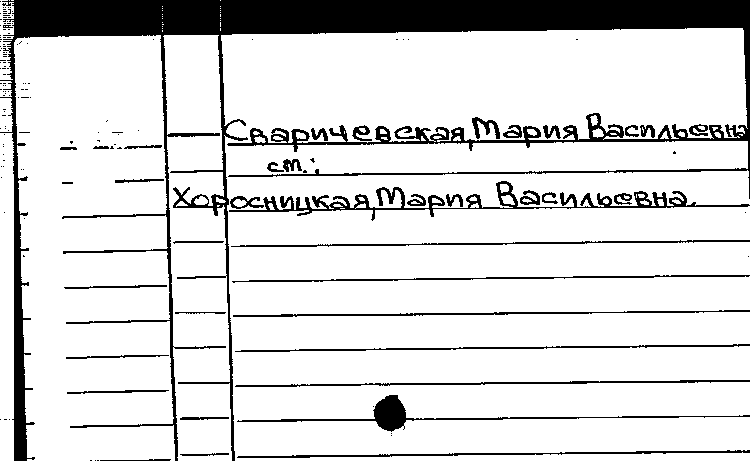 Сваричевская, Мария Васильевна
ст.:
Хоросницкая, Мария Васильевна.